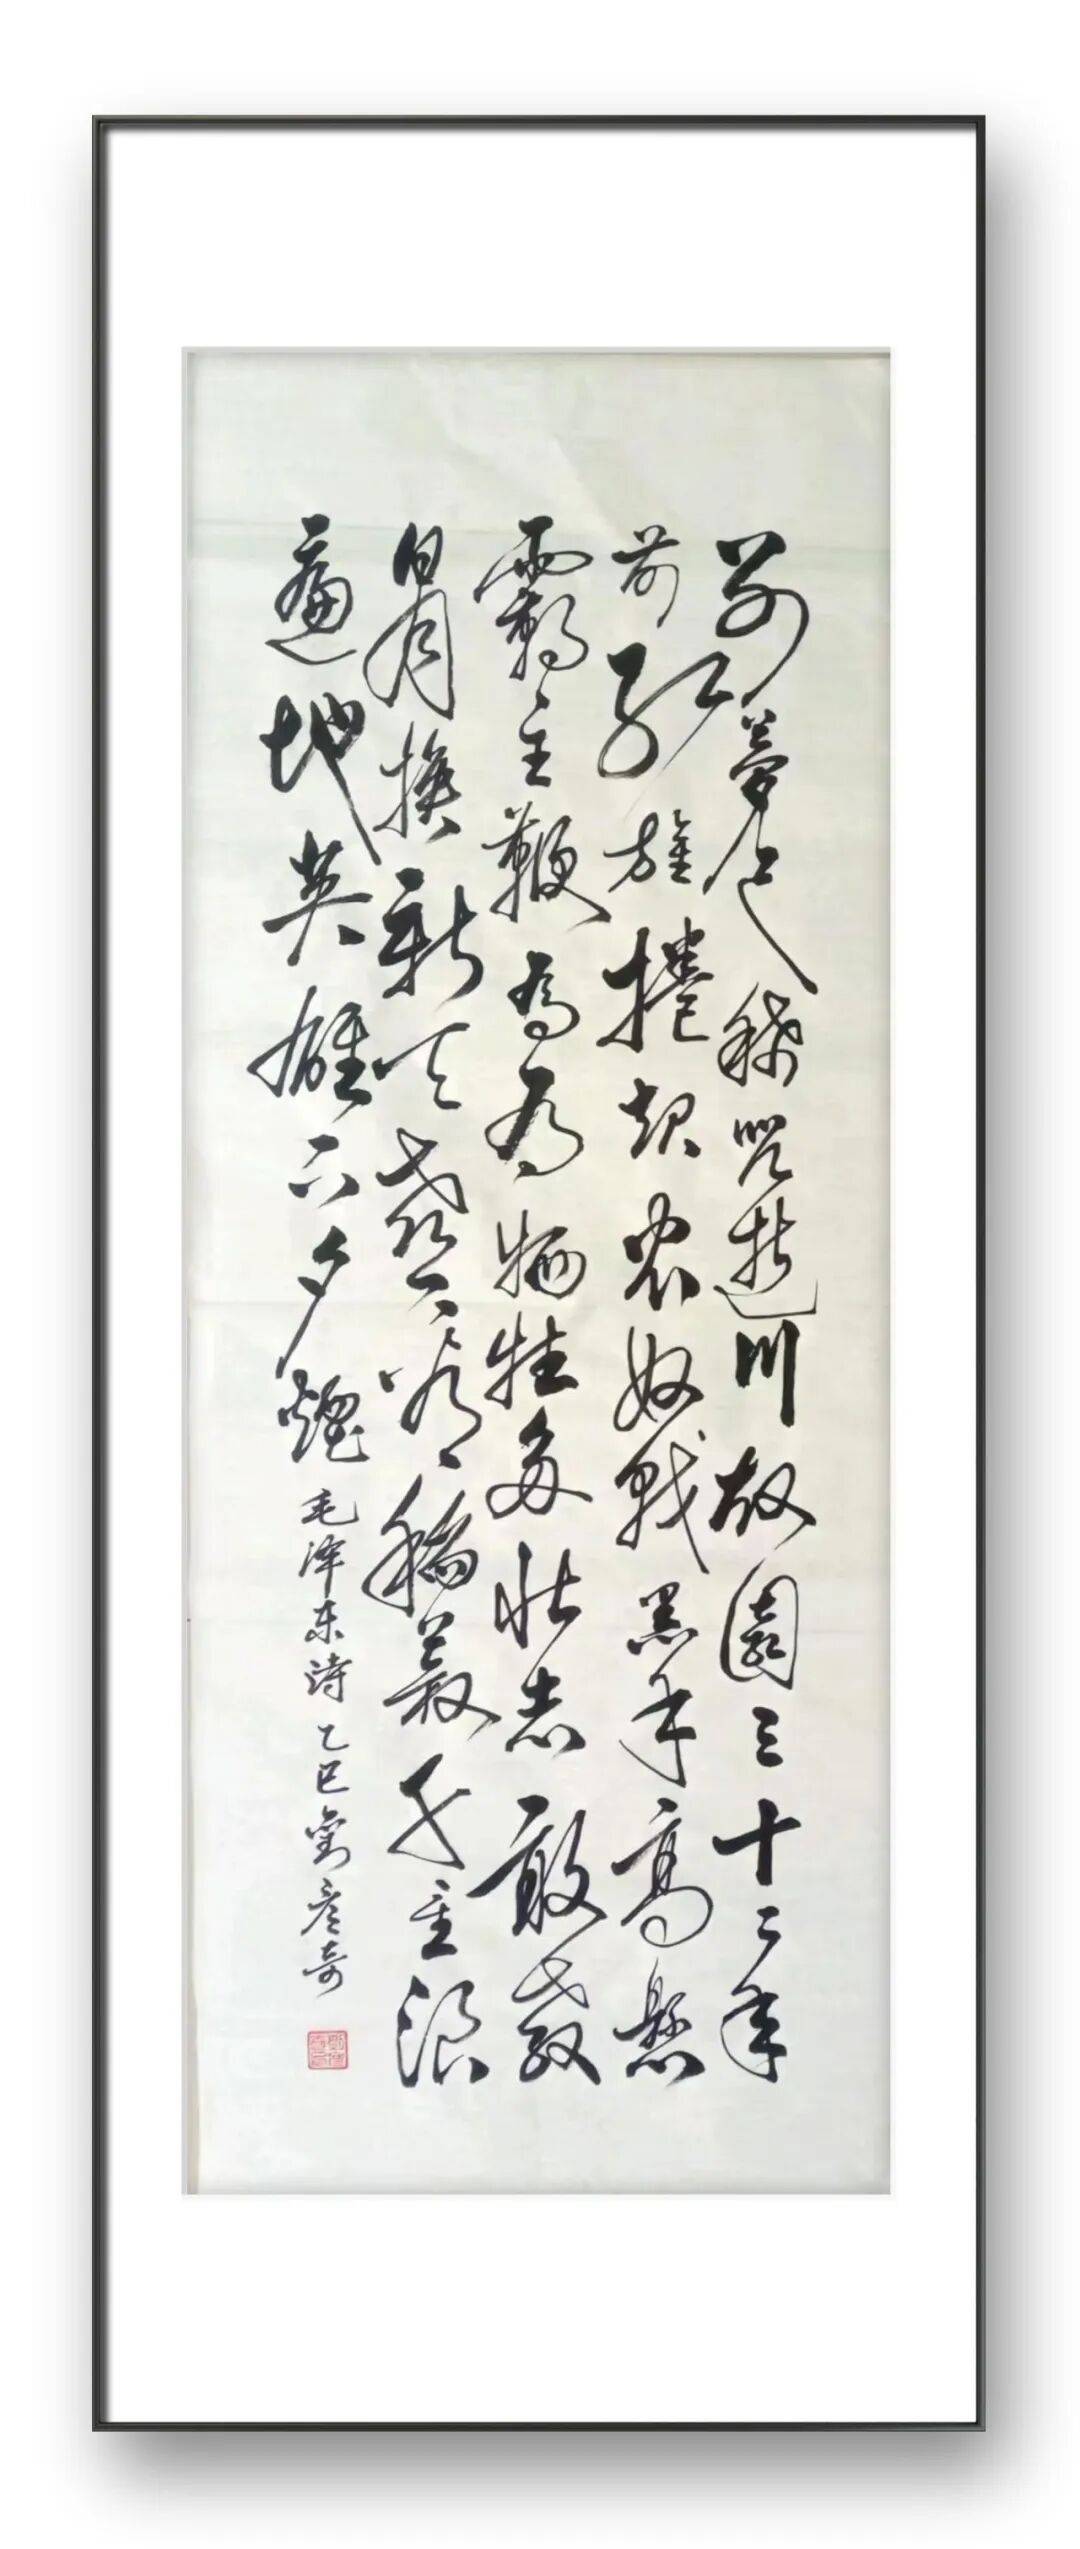 别夢依稀咒逝川故園三十二年
前红旗捲起农奴戟黑手高懸
霸主鞭為有牺牲多壮志敢教
日月换新天喜看稻菽千重浪
遍地英雄下夕煙
毛泽东诗 乙巳劉彦奇